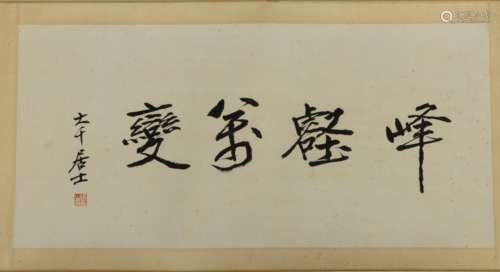 峰壑萬變
大千居士